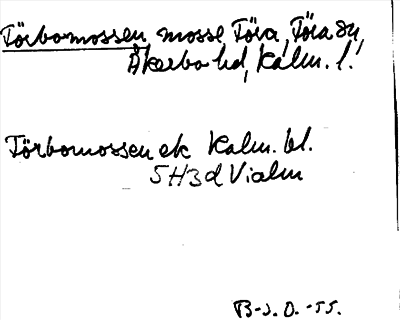 Törbomossen mosse Töra, Töra sn,
Åkerbo hd, Kalm. l.
Törbomossen ek Kalm. bl.
5H3d Vialm
B-s. O. -55.